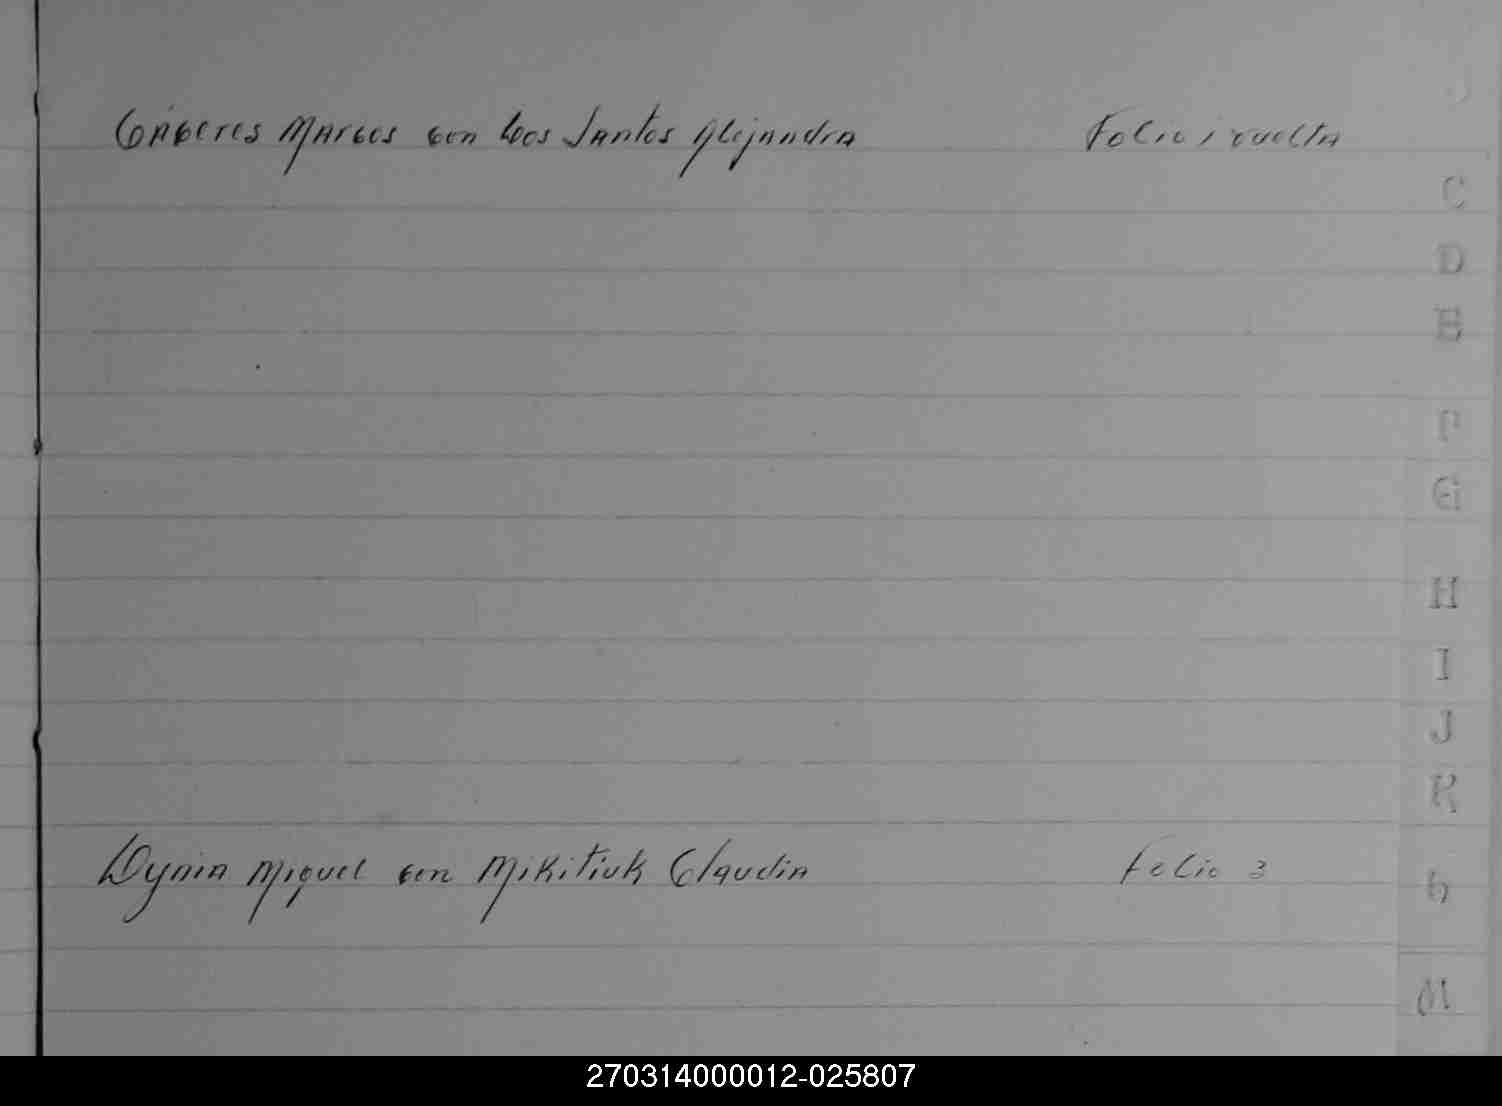 Cáceres Marcos con Dos Santos Alejandra Folio 1 vuelta
C
D
E
F
G
H
I
J
K
Dynia Miguel con Mikitiuk Claudia Folio 3
L
M
270314000012-025807